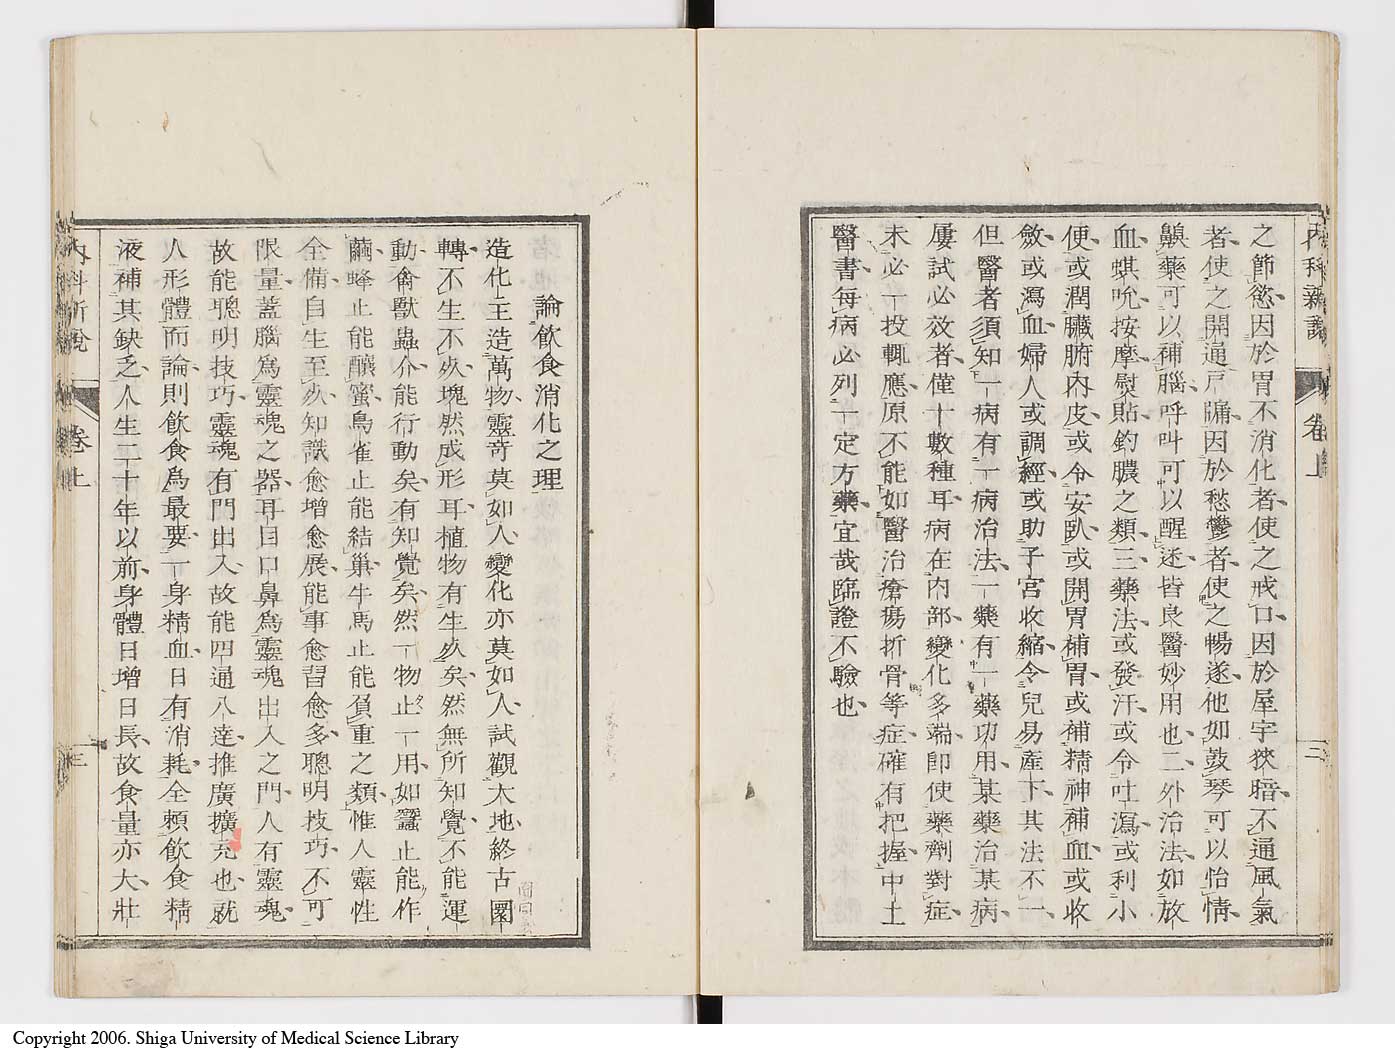 內科新說
卷上
三
之節慾因於胃不消化者使之戒口因於屋宇狹暗不通風氣
者使之開通戶牖因於愁鬱者使之暢遂他如鼓琴可以怡情
鼻藥可以補腦呼叫可以醒迷皆良醫妙用也二外治法如放
血蜞吮按摩熨貼釣膿之類三藥法或發汗或令吐瀉或利小
便或潤臟腑內皮或令安臥或開胃補胃或補精神補血或收
斂或瀉血婦人或調經或助子宮收縮令兒易產下其法不一
但醫者須知一病有一病治法一藥有一藥功用某藥治某病
屢試必效者僅十數種耳病在內部變化多端卽使藥劑對症
未必一投輒應原不能如醫治瘡瘍折骨等症確有把握中土
醫書每病必列一定方藥宜哉臨證不驗也
論飲食消化之理
造化主造萬物靈奇莫如人變化亦莫如人試觀大地終古圜
轉不生不死塊然成形耳植物有生死矣然無所知覺不能運
動禽獸蟲介能行動矣有知覺矣然一物止一用如蠶止能作
繭蜂止能釀蜜鳥雀止能結巢牛馬止能負重之類惟人靈性
全備自生至死知識愈增愈展能事愈習愈多聰明技巧不可
限量蓋腦爲靈魂之器耳目口鼻爲靈魂出入之門人有靈魂
故能聰明技巧靈魂有門出入故能四通八達推廣擴充也就
人形體而論則飲食爲最要一身精血日有消耗全賴飲食精
液補其缺乏人生二十年以前身體日增日長故食量亦大壯
內科新說
卷上
三
Copyright 2006. Shiga University of Medical Science Library